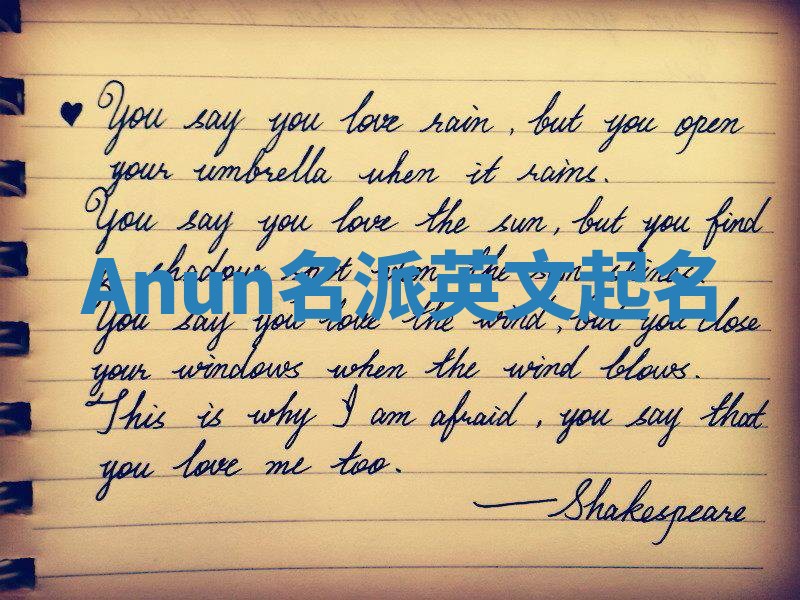 ♥ You say you love rain, but you open
your umbrella when it rains.
You say you love the sun, but you find
a shadow spot when the sun shines.
Anun名派英文起名
You say you love the wind, but you close
your windows when the wind blows.
This is why I am afraid, you say that
you love me too.
—Shakespeare